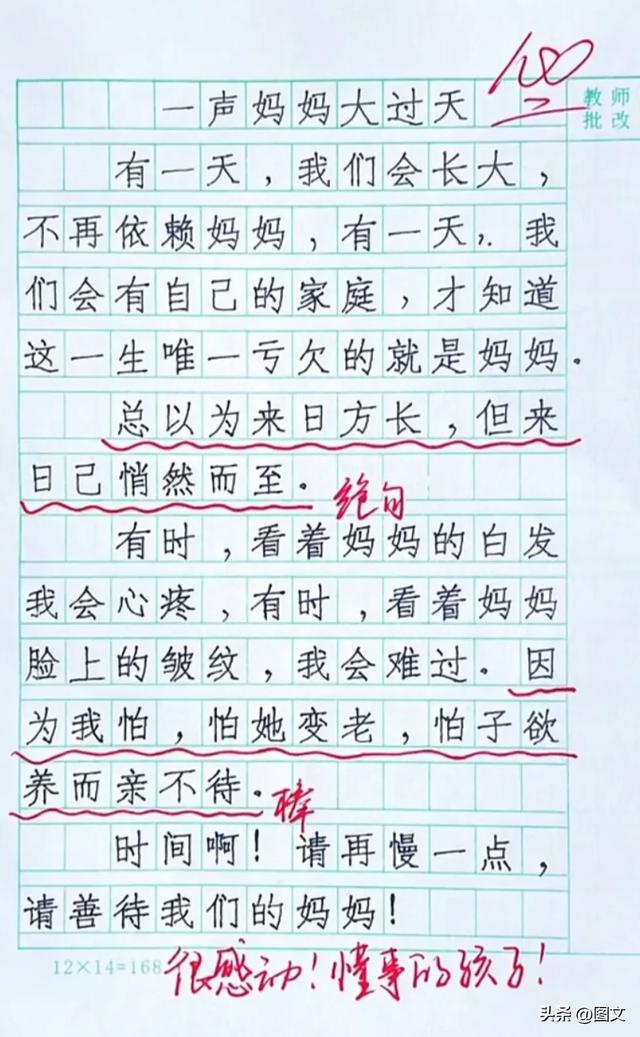 一声妈妈大过天
100
教师
批改
有一天，我们会长大，
不再依赖妈妈，有一天，. 我
们会有自己的家庭，才知道
这一生唯一亏欠的就是妈妈。
总以为来日方长，但来
日己悄然而至。
绝句
有时，看着妈妈的白发
我会心疼，有时，看着妈妈
脸上的皱纹，我会难过。因
为我怕，怕她变老，怕子欲
养而亲不待。
棒
时间啊！请再慢一点，
请善待我们的妈妈！
12×14=168
很感动！懂事的孩子！
头条 @图文